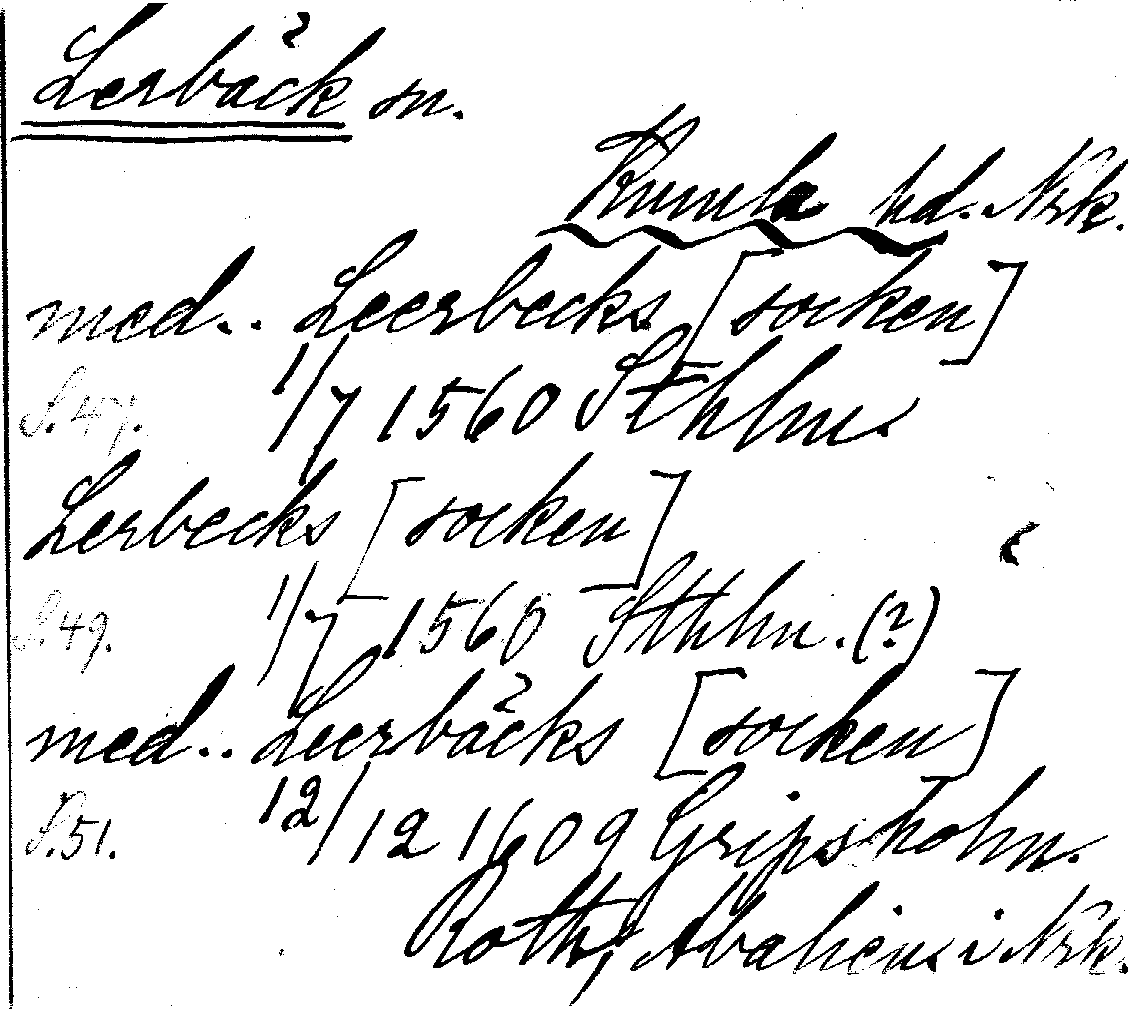 Lerbäck sn.
Kumla hd. Nrk.
med.. Leerbecks [socken]
S. 47. 1/7 1560 Sthlm.
Lerbecks [socken]
S. 49. 1/7 1560 Sthlm. (?)
med.. Leerbäcks [socken]
S. 51. 12/12 1609 Gripsholm.
Roth, i Nrk.